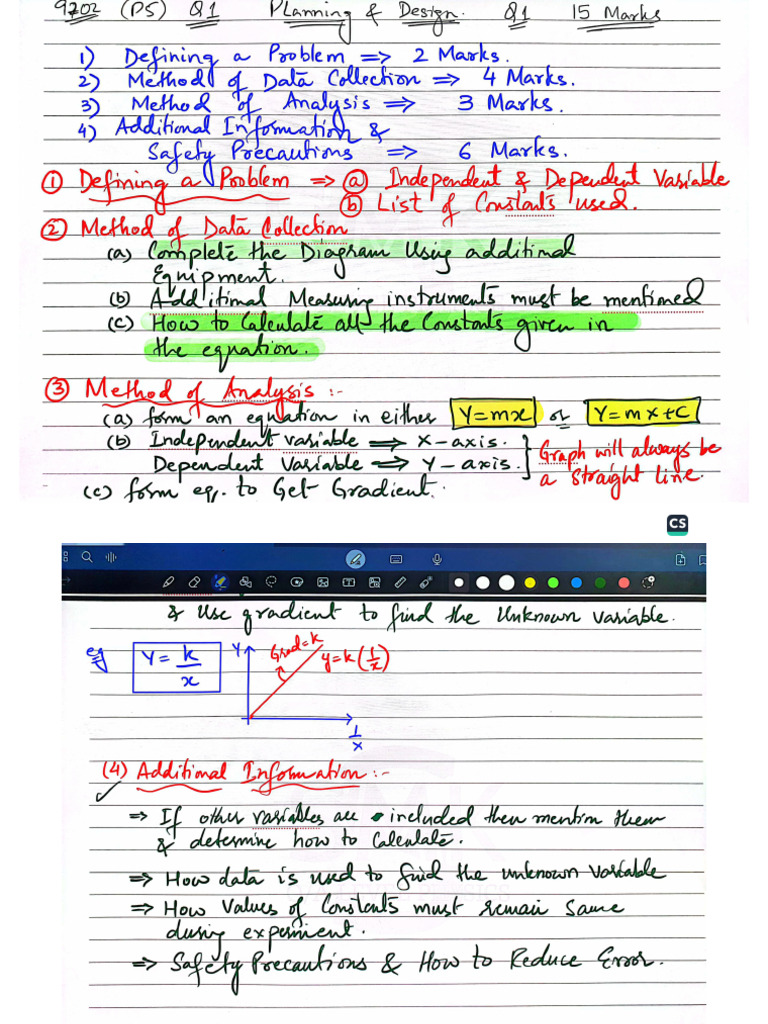 9702 (P5) Q1 Planning & Design. Q1 15 Marks
1) Defining a Problem ⇒ 2 Marks.
2) Method of Data Collection ⇒ 4 Marks.
3) Method of Analysis ⇒ 3 Marks.
4) Additional Information &
Safety Precautions ⇒ 6 Marks.
① Defining a Problem ⇒ (a) Independent & Dependent Variable
(b) List of Constants used.
② Method of Data Collection
(a) Complete the Diagram Using additional
Equipment.
(b) Additional Measuring instruments must be mentioned
(c) How to Calculate all the Constants given in
the equation.
③ Method of Analysis :-
(a) form an equation in either Y=mx or Y=mx+C
(b) Independent variable ⇒ X-axis.
Dependent Variable ⇒ Y-axis.
Graph will always be
a straight line.
(c) form eq. to Get Gradient.
CS
& Use gradient to find the Unknown variable.
eg Y = k/x
Y
Grad=k
y=k(1/x)
1/x
(4) Additional Information :-
✓
⇒ If other variables are included then mention them
& determine how to Calculate.
⇒ How data is used to find the unknown variable
⇒ How Values of Constants must remain Same
during experiment.
⇒ Safety Precautions & How to Reduce Error.